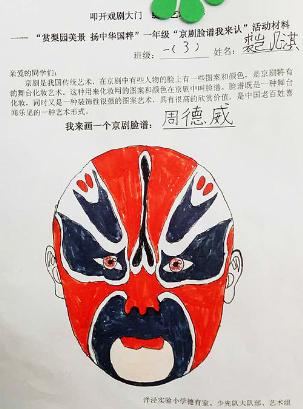 叩开戏剧大门
——“赏梨园美景 扬中华国粹”一年级“京剧脸谱我来认”活动材料
班级：一(3) 姓名：
亲爱的同学们：
京剧是我国传统艺术，在京剧中有些人物的脸上有一些图案和颜色，是京剧特有的舞台化妆艺术。这种用来化妆时的图案和颜色在京剧中叫脸谱。脸谱既是一种舞台化妆，同时又是一种装饰性很强的图案艺术，具有很高的欣赏价值，是中国老百姓喜闻乐见的一种艺术形式。
我来画一个京剧脸谱：周德威
洋泾实验小学德育室、少先队大队部、艺术组